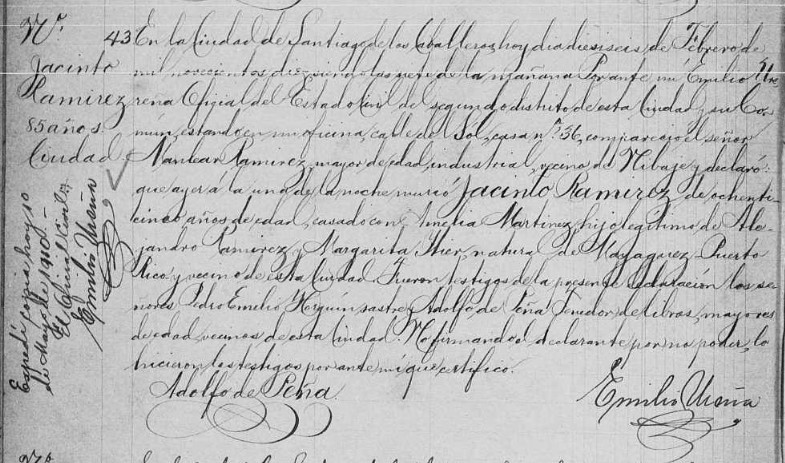 Nº 43
Jacinto
Ramirez
85 años
Ciudad
En la Ciudad de Santiago de los Caballeros, hoy dia dieciseis de Febrero de
mil novecientos diez siendo las siete de la mañana Por ante mi Emilio Ure
reña Oficial del Estado Civil del segundo distrito de esta Ciudad y su Co-
mún, estando en mi oficina, calle del Sol, casa nº 36, comparecio el señor
Ramirez, mayor de edad, industrial, vecino de Nibaje y declaró:
que ayer a la una de la noche murió Jacinto Ramirez de ochenti-
cinco años de edad, casado con Amelia Martinez, hijo legitimo de Ale-
jandro Ramirez y Margarita natural de Mayaguez Puerto
Rico y vecino de esta Ciudad. Fueron testigos de la presente declaración los se-
ñores Pedro Emilio sastre, Adolfo de Peña Tenedor de libros, mayores
de edad, vecinos de esta Ciudad. No firmando el declarante por no poder, lo
hicieron los testigos por ante mi que certifico.
Adolfo de Peña
Emilio Ureña
Expedi copia hoy 10
de Marzo de 1910
El Oficial Civil
Emilio Ureña